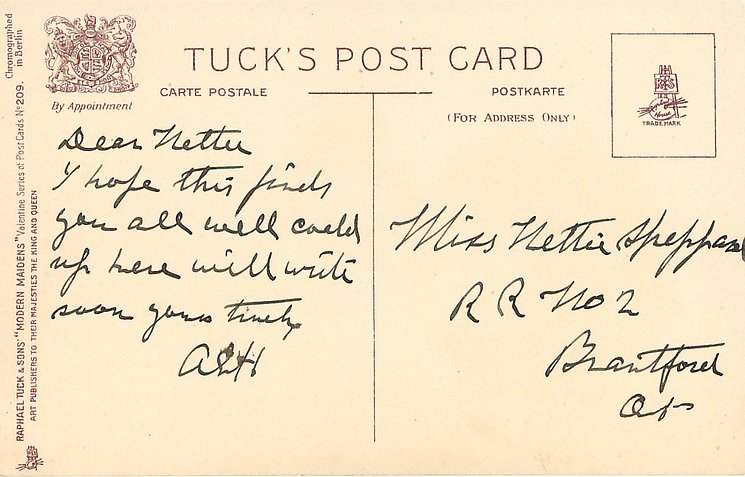 TUCK'S POST CARD
CARTE POSTALE
POSTKARTE
(FOR ADDRESS ONLY)
By Appointment
TRADE MARK
Chromographed
in Berlin
RAPHAEL TUCK & SONS' "MODERN MAIDENS" Valentine Series of Post Cards No 209.
ART PUBLISHERS TO THEIR MAJESTIES THE KING AND QUEEN
Dear Nettie
I hope this finds
you all well could
up here will write
soon yours truely
Miss Nettie Sheppard
R R No 2
Brantford